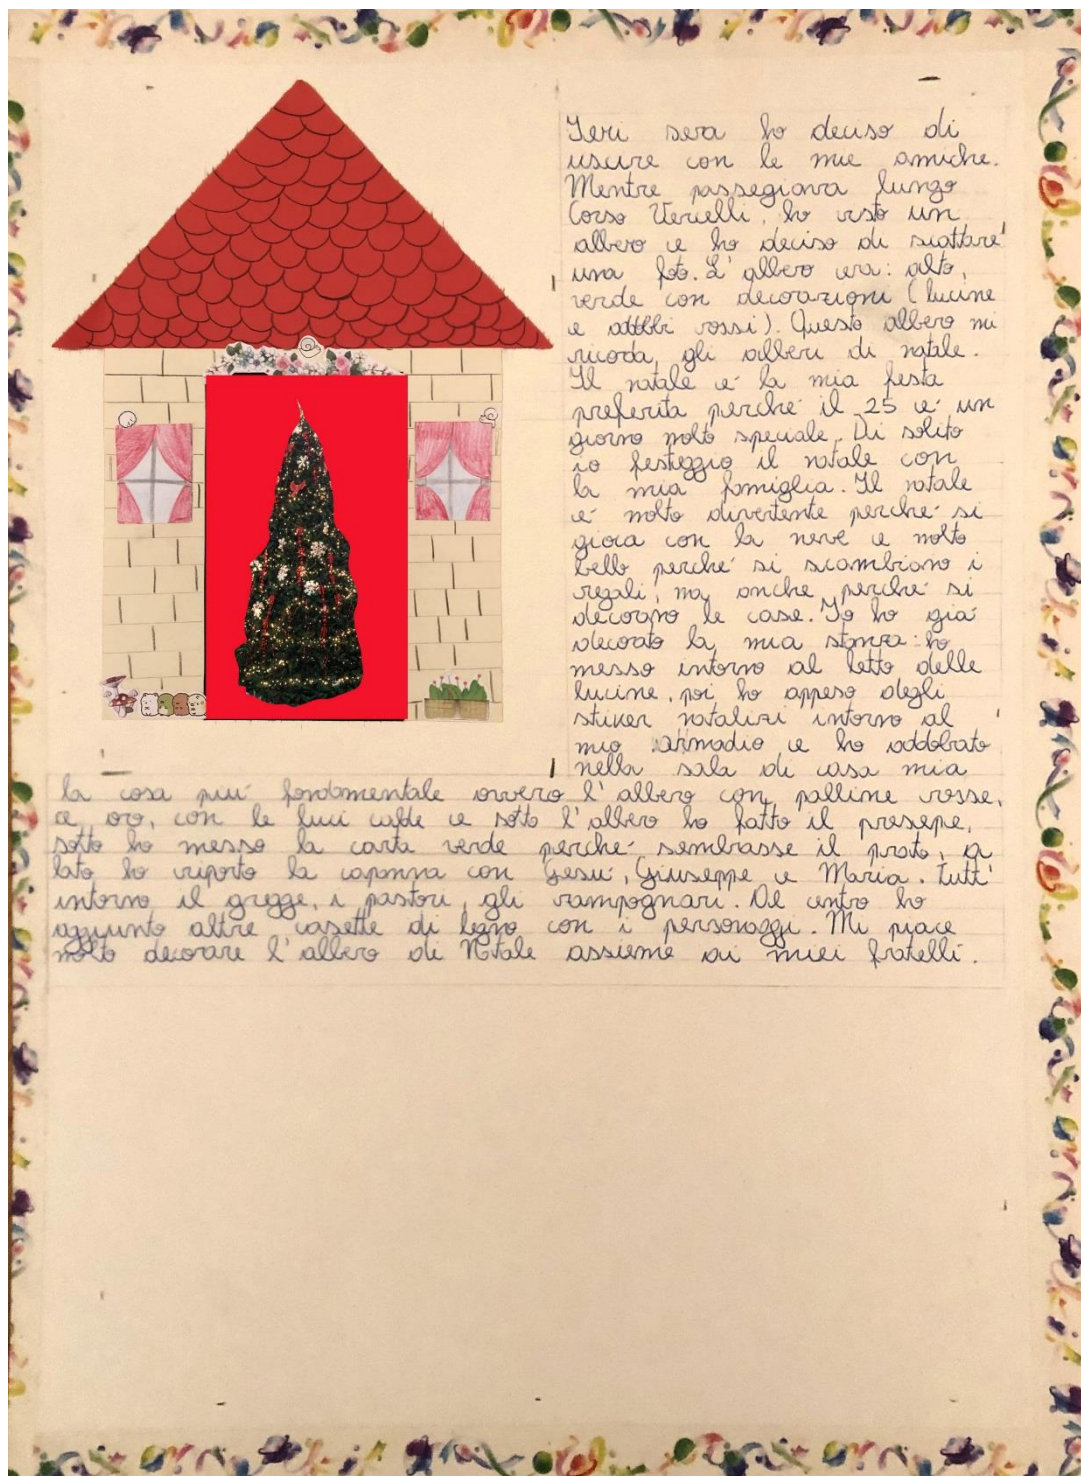 Ieri sera ho deciso di
uscire con le mie amiche.
Mentre passegiava lungo
Corso Vercelli, ho visto un
albero e ho deciso di scattare
una foto. L'albero era: alto,
verde con decorazioni (lucine
e addobbi rossi). Questo albero mi
ricorda gli alberi di natale.
Il natale é la mia festa
preferita perché il 25 é un
giorno molto speciale. Di solito
io festeggio il natale con
la mia famiglia. Il natale
é molto divertente perché si
gioca con la neve e molto
bello perché si scambiano i
regali, ma anche perché si
decorano le case. Io ho giá
decorato la mia stanza: ho
messo intorno al letto delle
lucine, poi ho appeso degli
stiker natalizi intorno al
mio armadio e ho addobato
nella sala di casa mia
la cosa piú fondamentale ovvero l'albero con palline rosse,
e oro, con le luci calde e sotto l'albero ho fatto il presepe,
sotto ho messo la carta verde perché sembrasse il prato, a
lato ho riposto la capanna con Gesú, Giuseppe e Maria. Tutt'
intorno il gregge, i pastori, gli zampognari. Al centro ho
aggiunto altre casette di legno con i personaggi. Mi piace
molto decorare l'albero di Natale assieme ai miei fratelli.